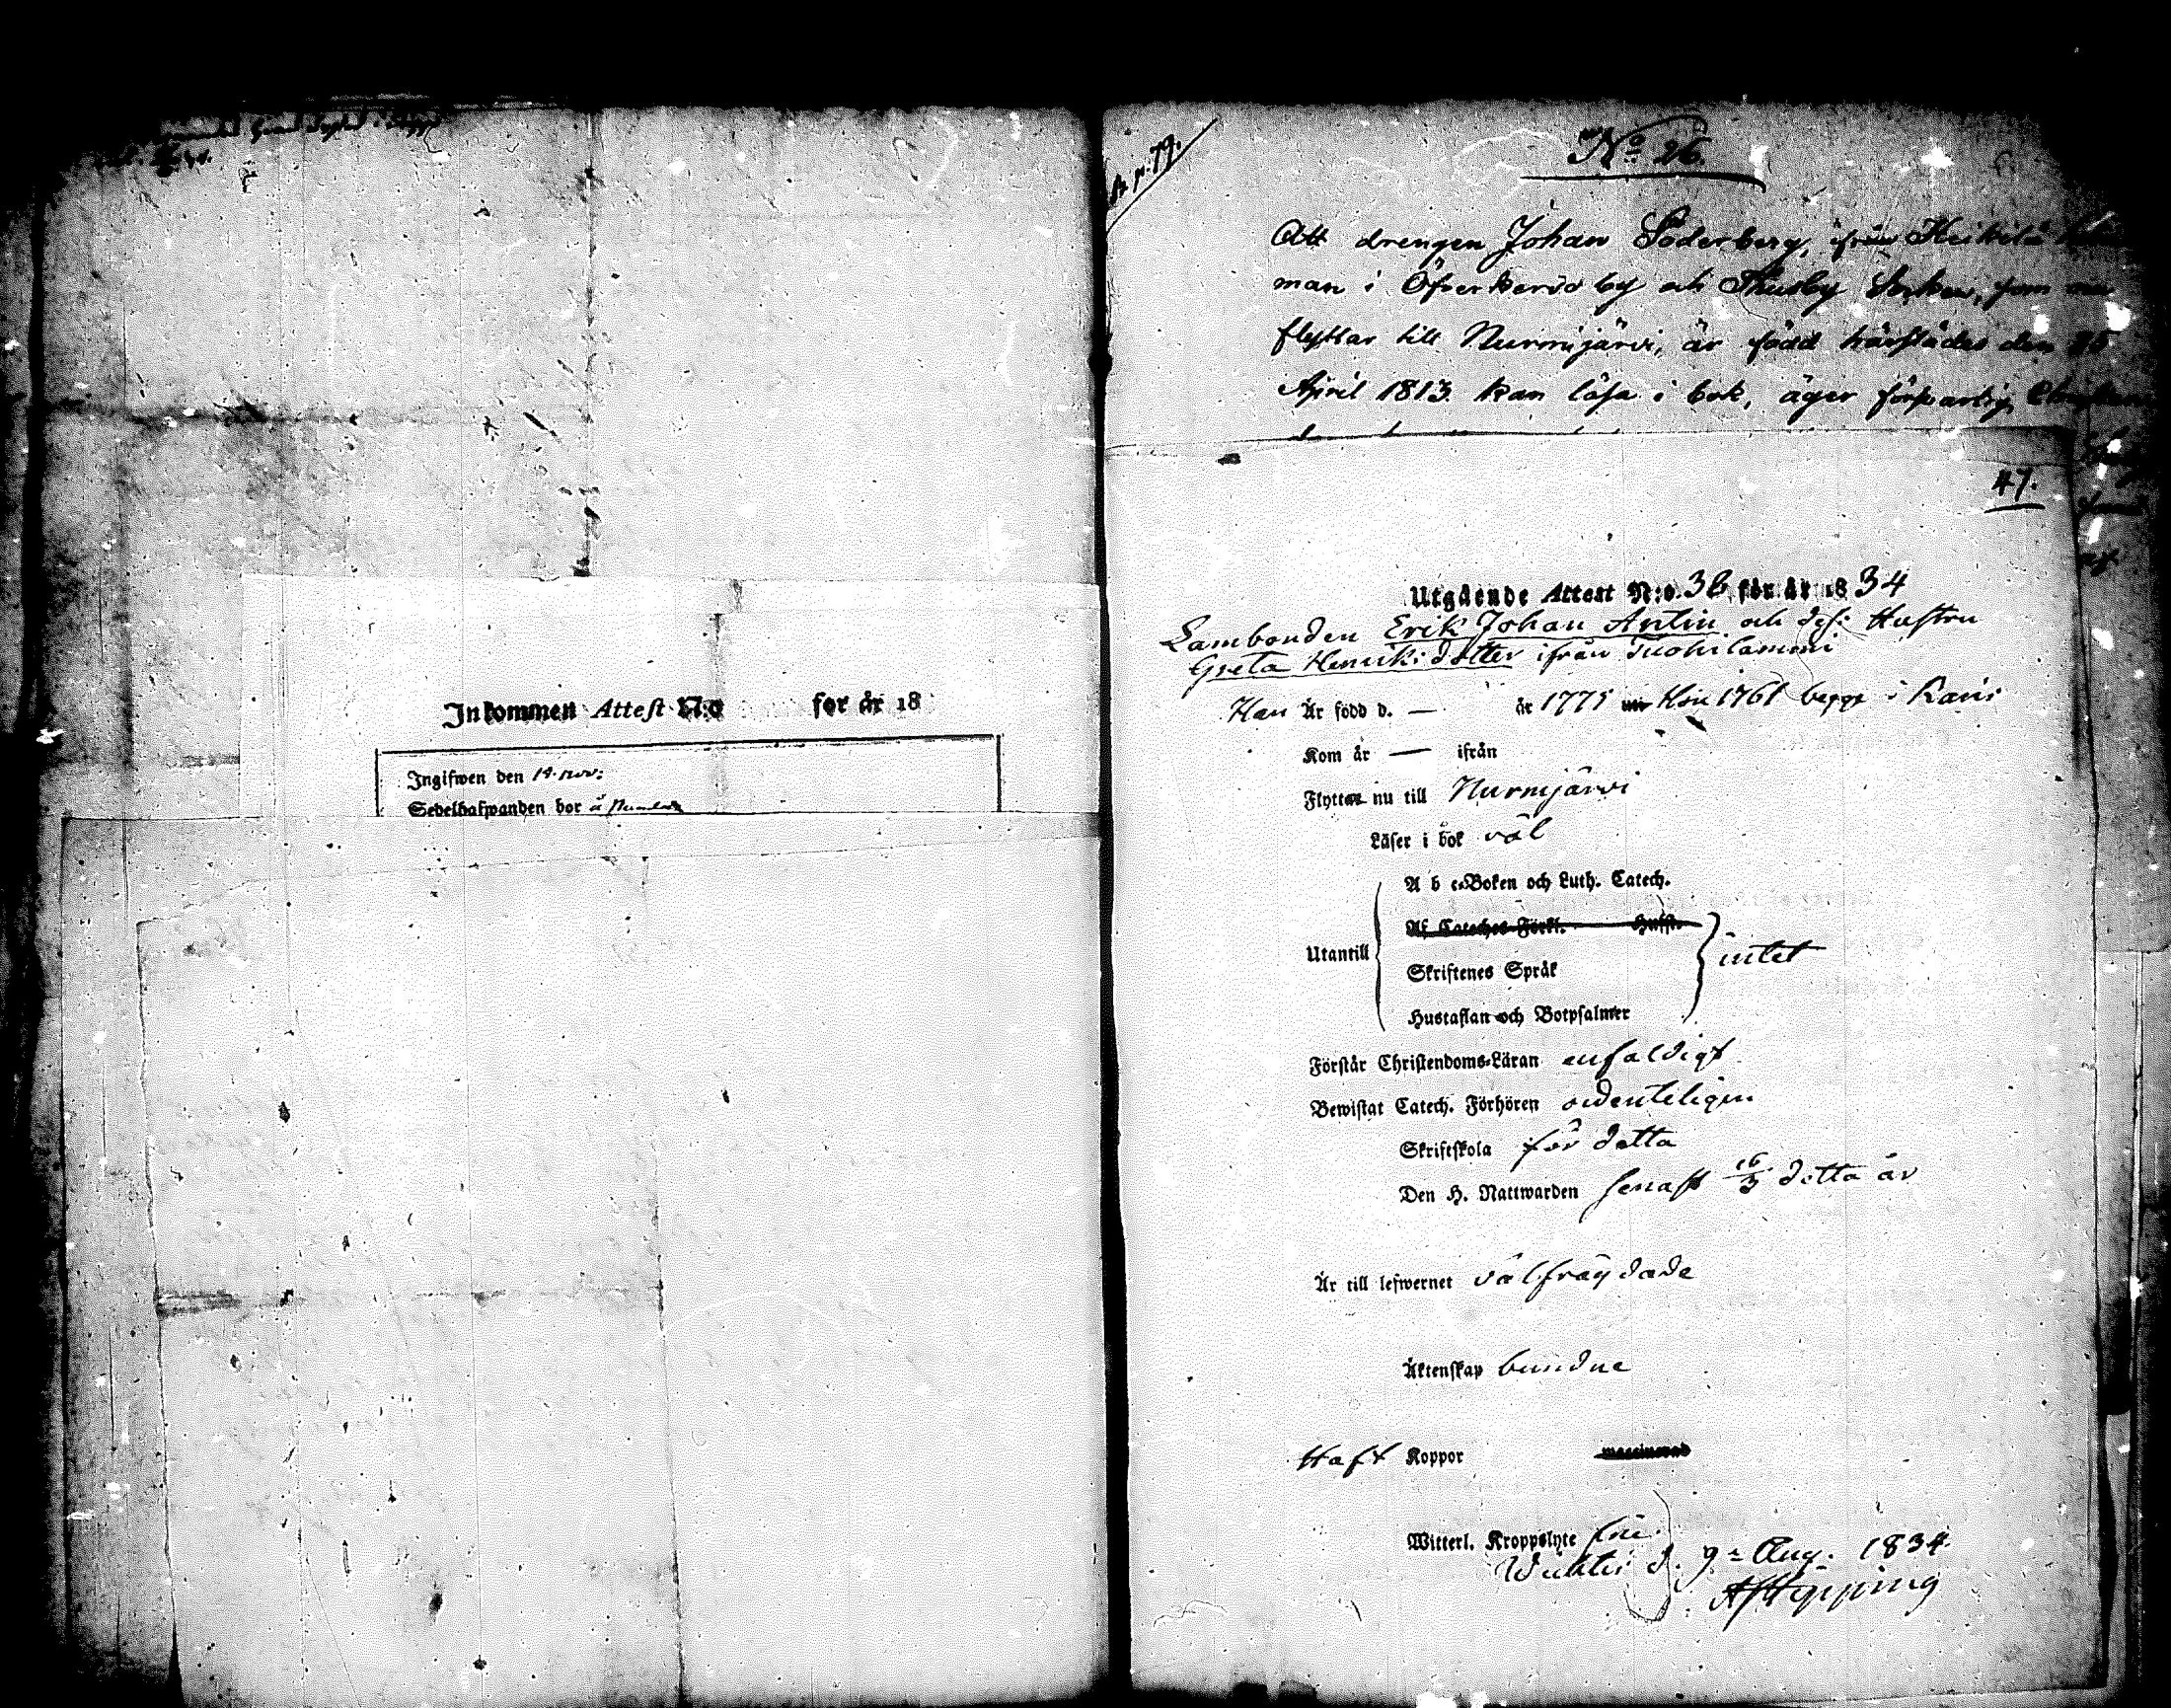 Inkommen Attest N:o för år 18
Ingifwen den 14 nov:
Sedelhafwanden bor å
N:o 26.
Att drengen Johan Söderberg, ifrån Heikilä
man i Öfverkervo by och Thusby Soken, som nu
flyttar till Nurmijärvi, är född härstädes den 26
April 1813. kan läsa i bok, äger förswarlig
47.
Utgående Attest N:o 36 för år 1834
Lambonden Erik Johan Antin och dess Hustru
Greta Henriksdotter ifrån Tuohilammi
Han Är född d. — år 1775 Hon 1761 begge i Karis
Kom år — ifrån
Flytta nu till Nurmijärvi
Läser i bok väl
A b c-Boken och Luth. Catech.
Af Cateches Förkl. Hufst.
Utantill
Skriftenes Språk
intet
Hustaflan och Botpsalmer
Förstår Christendoms-Läran enfaldigt
Bewistat Catech. Förhören ordenteligen
Skriftskola för detta
Den H. Nattwarden senast 16/3 detta år
Är till lefwernet välfrägdade
Äktenskap bundne
Haft Koppor vaccinerad
Witterl. Kroppslyte frie
Wichtis d. 9:e Aug. 1834.